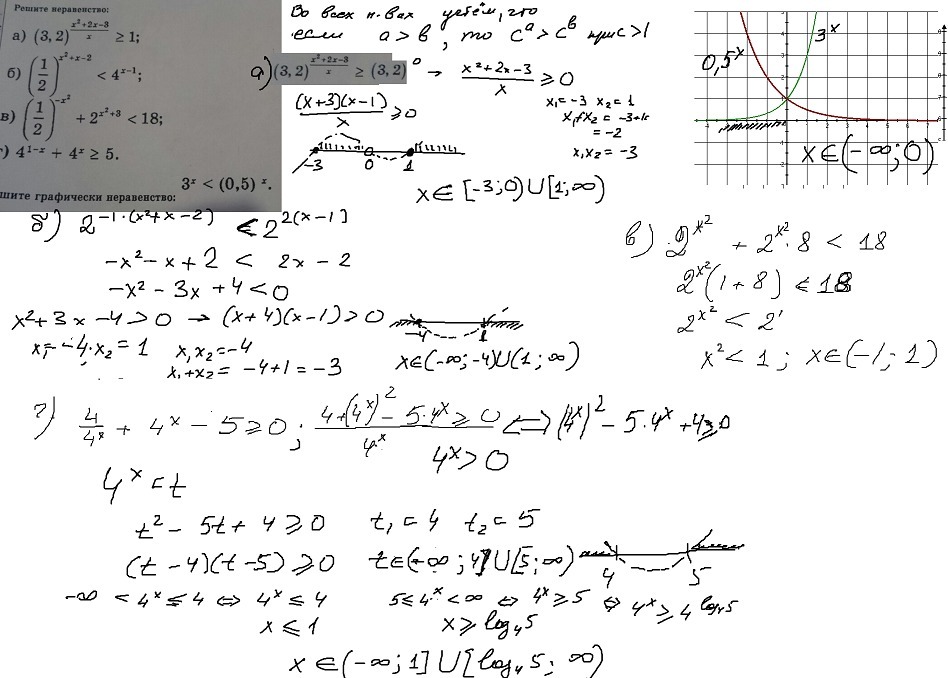 Решите неравенство:
а) (3, 2)^{\frac{x²+2x-3}{x}} ≥ 1;
б) (1/2)^{x²+x-2} < 4^{x-1};
в) (1/2)^{-x²} + 2^{x²+3} < 18;
г) 4^{1-x} + 4^x ≥ 5.
3^x < (0,5)^x.
шите графически неравенство:
Во всех н-вах учтём, что
если a > b, то c^a > c^b при c > 1
а) (3, 2)^{\frac{x²+2x-3}{x}} ≥ (3, 2)^0 → \frac{x²+2x-3}{x} ≥ 0
\frac{(x+3)(x-1)}{x} ≥ 0
x₁ = -3 x₂ = 1
x₁+x₂ = -3+1
= -2
x₁x₂ = -3
-3 0 1
x ∈ [-3; 0) ∪ [1; ∞)
0,5^x
3^x
x ∈ (-∞; 0)
б) 2^{-1·(x²+x-2)} < 2^{2(x-1)}
-x² - x + 2 < 2x - 2
-x² - 3x + 4 < 0
x² + 3x - 4 > 0 → (x+4)(x-1) > 0
-4 1
x₁ = -4 · x₂ = 1 x₁x₂ = -4
x₁+x₂ = -4+1 = -3
x ∈ (-∞; -4) ∪ (1; ∞)
в) 2^{x²} + 2^{x²}·8 < 18
2^{x²}(1+8) < 18
2^{x²} < 2^1
x² < 1; x ∈ (-1; 1)
г) \frac{4}{4^x} + 4^x - 5 ≥ 0; \frac{4+(4^x)² - 5·4^x}{4^x} ≥ 0 ⟺ (4^x)² - 5·4^x + 4 ≥ 0
4^x > 0
4^x = t
t² - 5t + 4 ≥ 0 t₁ = 4 t₂ = 5
(t-4)(t-5) ≥ 0 t ∈ (-∞; 4] ∪ [5; ∞)
4 5
-∞ < 4^x ≤ 4 ⇔ 4^x ≤ 4 5 ≤ 4^x < ∞ ⇔ 4^x ≥ 5 ⇔ 4^x ≥ 4^{log₄5}
x ≤ 1 x ≥ log₄5
x ∈ (-∞; 1] ∪ [log₄5; ∞)